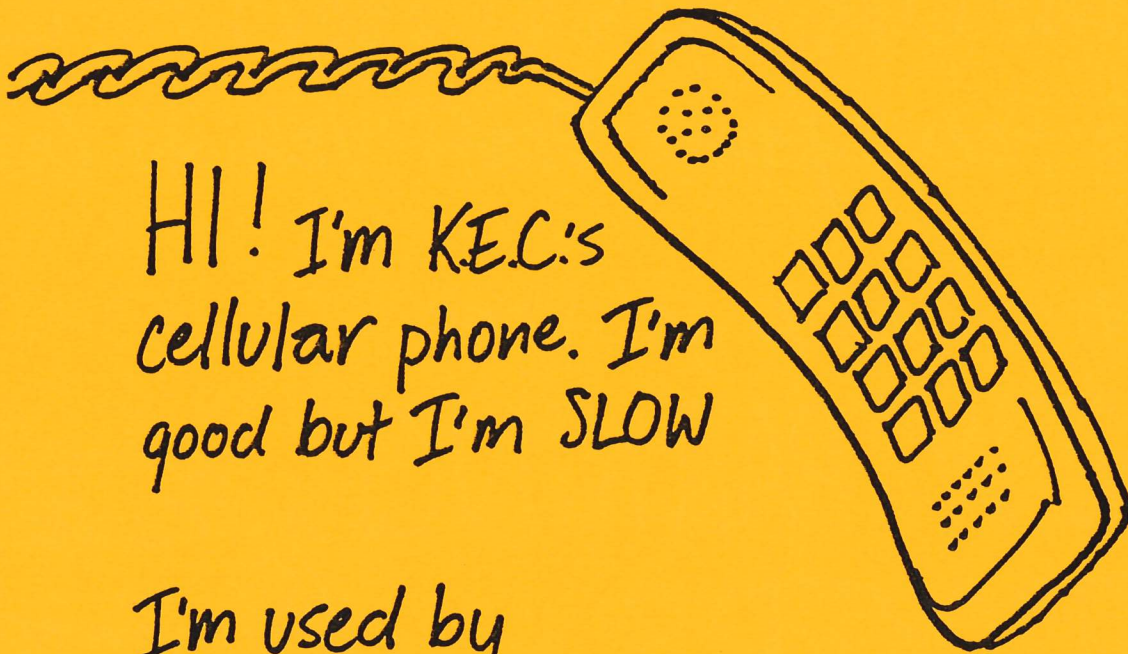 HI! I'm K.E.C.'s
cellular phone. I'm
good but I'm SLOW
I'm used by